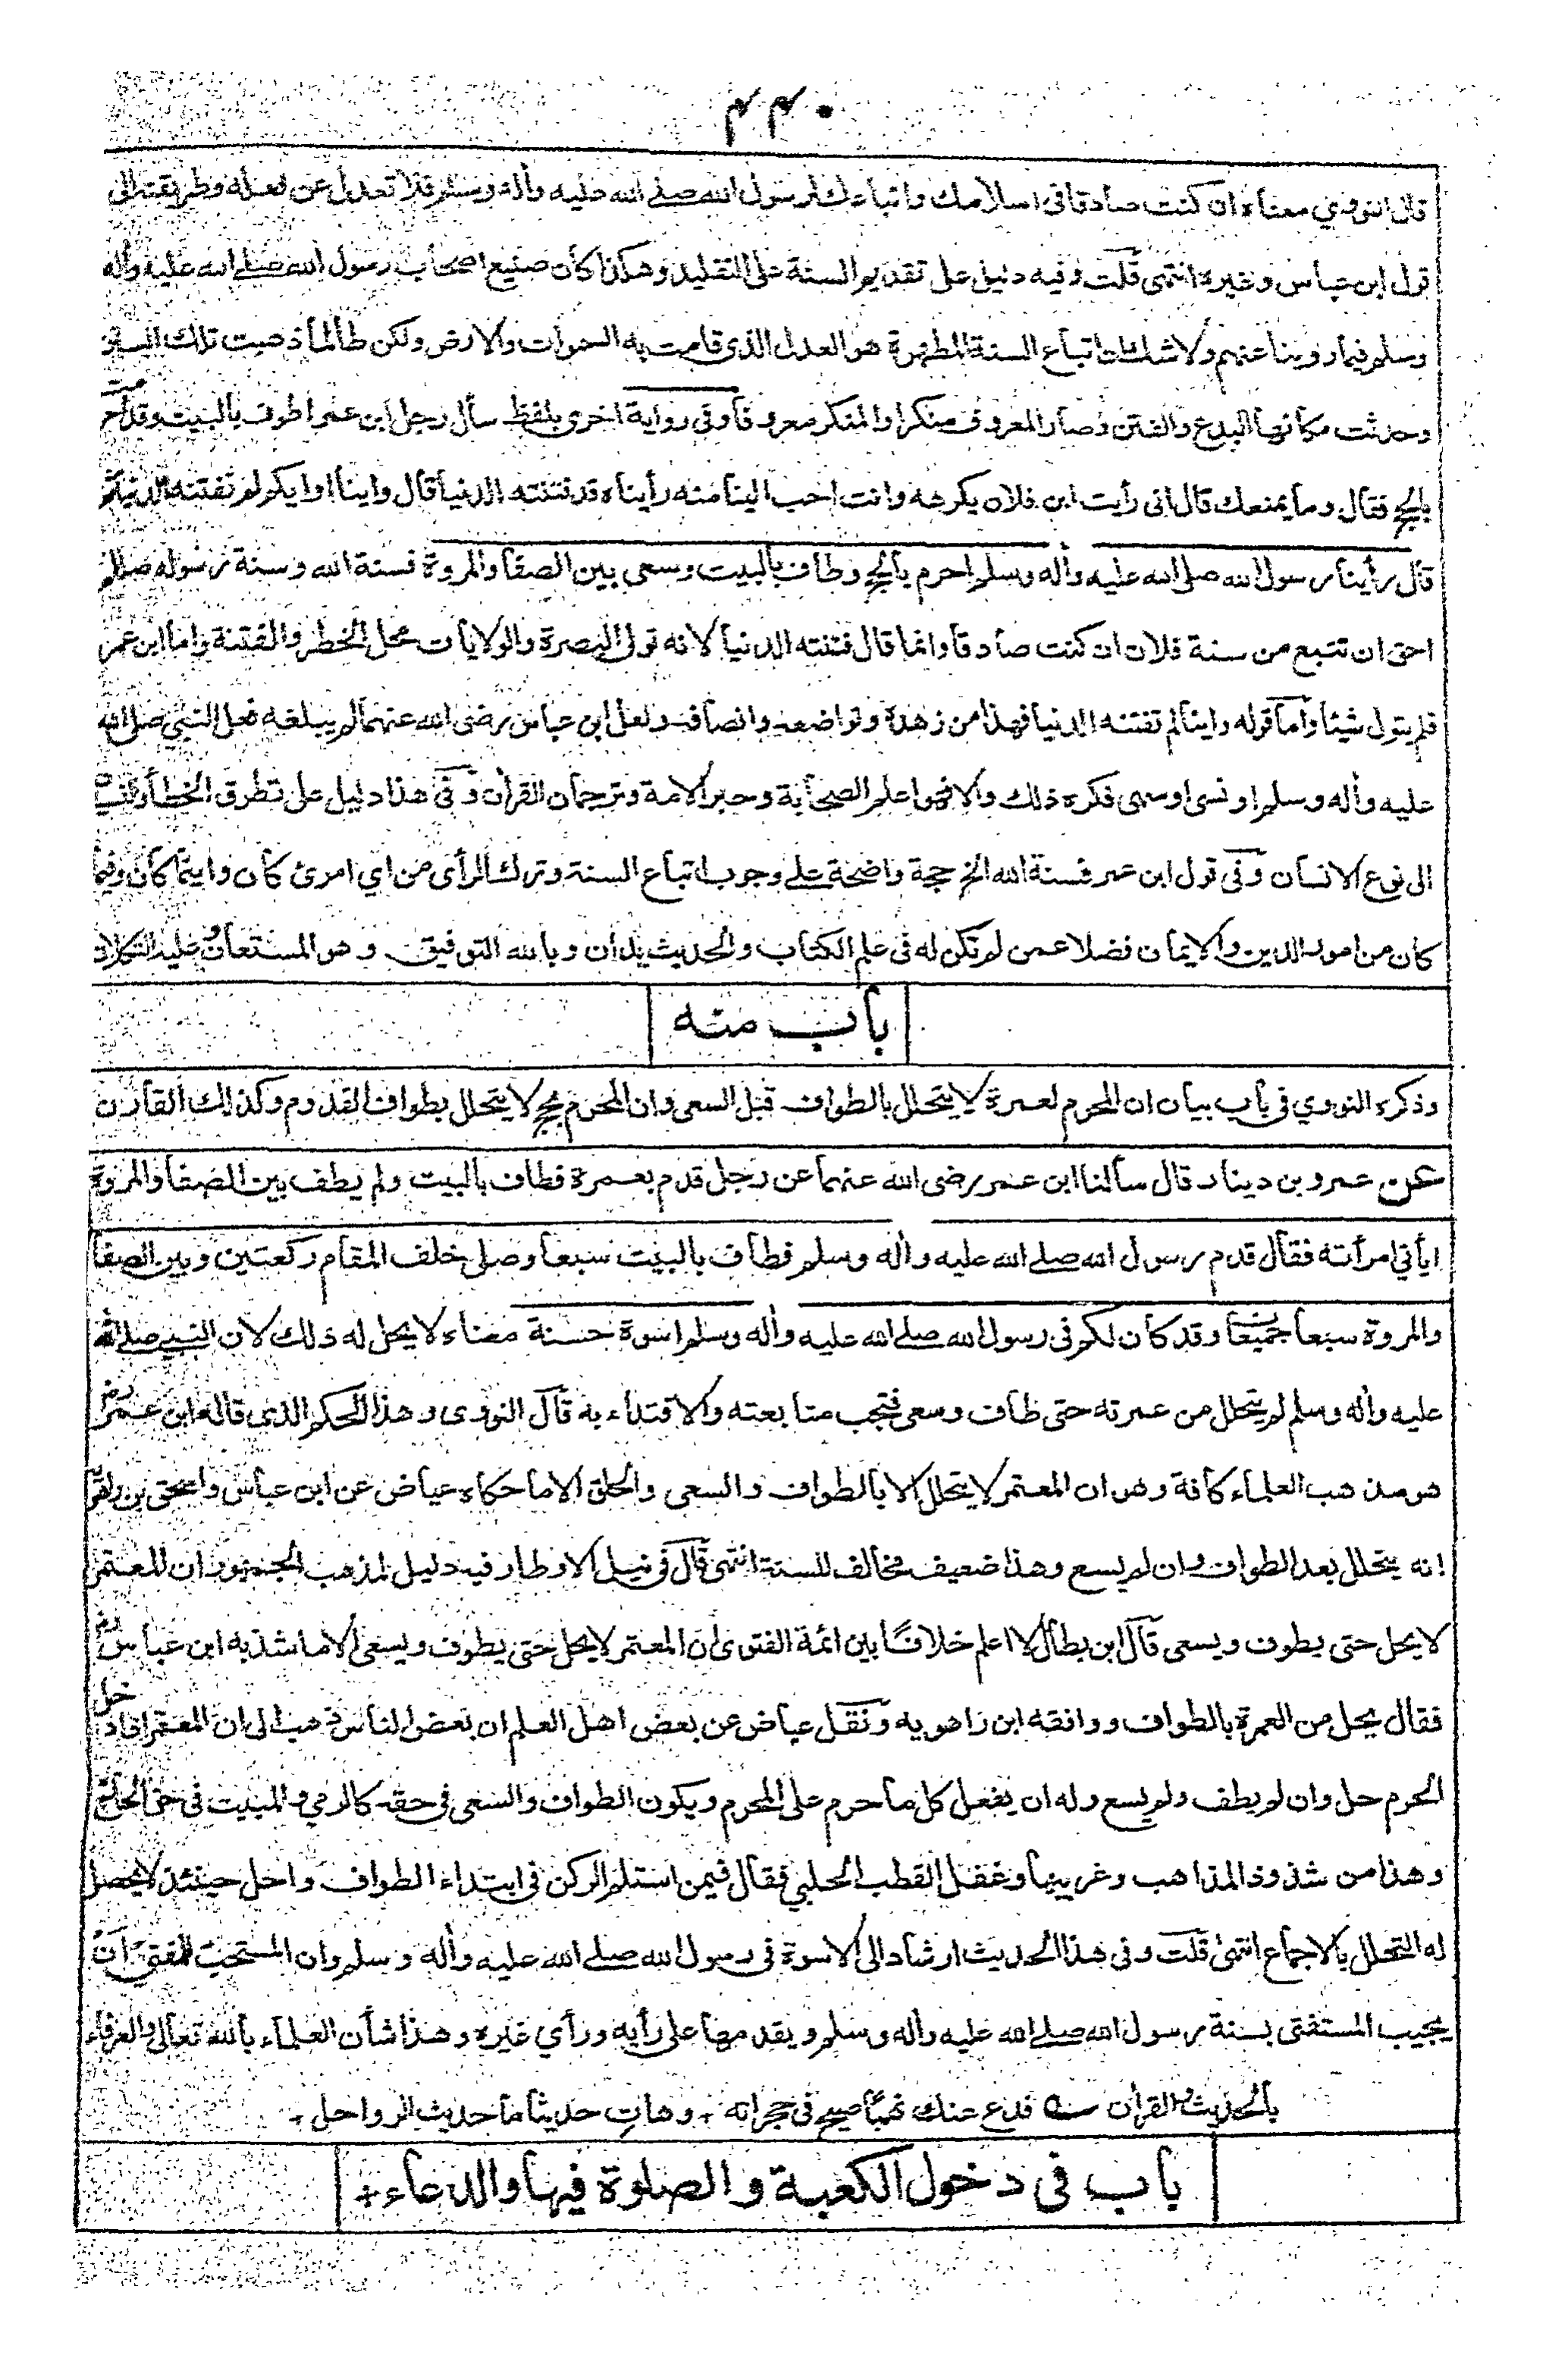 ٤٤٠
قال النووي معناه ان كنت صادقا في اسلامك واتباعك لرسول الله صلے الله عليه واٰله وسلم فلا تعدل عن فعله وطريقته الى
قول ابن عباس وغيره انتهى قلت وفيه دليل على تقديم السنة على التقليد وهكذا كان صنيع اصحاب رسول الله صلے الله عليه واٰله
وسلم فيما روينا عنهم ولا شك ان اتباع السنة المطهرة هو العدل الذى قامت به السموات والارض ولكن طالما ذهبت تلك السنن
وحدثت مكانها البدع والفتن وصار المعروف منكرا والمنكر معروفا وفى رواية اخرى بلفظ سأل رجل ابن عمر اطوف بالبيت وقد احرمت
بالحج فقال وما يمنعك قال انى رأيت ابن فلان يكرهه وانت احب الينا منه رأيناه قد فتنته الدنيا قال واينا او ايكم لم تفتنه الدنيا ثم
قال رأينا رسول الله صلى الله عليه واٰله وسلم احرم بالحج وطاف بالبيت وسعى بين الصفا والمروة فسنة الله وسنة رسوله صللم
احق ان تتبع من سنة فلان ان كنت صادقا وانما قال فتنته الدنيا لانه تولى البصرة والولايات محل الخطر والفتنة واما ابن عمر
فلم يتول شيئا واما قوله واينا لم تفتنه الدنيا فهذا من زهده وتواضعه وانصافه ولعل ابن عباس رضى الله عنهما لم يبلغه فعل النبي صلى الله
عليه واٰله وسلم او نسى او سهى فكره ذلك والا فهو اعلم الصحابة وحبر الامة وترجمان القرآن وفى هذا دليل على تطرق الخطأ والنسيان
الى نوع الانسان وفى قول ابن عمر فسنة الله الخ حجة واضحة على وجوب اتباع السنة وترك الرأى من اي امرئ كان واينما كان وفيما
كان من امور الدين والايمان فضلا عمن لم تكن له فى علم الكتاب والحديث يدان وبالله التوفيق وهو المستعان وعليه التكلان
باب منه
وذكره النووي فى باب بيان ان المحرم لعمرة لا يتحلل بالطواف قبل السعى وان المحرم بحج لا يتحلل بطواف القدوم وكذلك القارن
عن عمرو بن دينار قال سألنا ابن عمر رضى الله عنهما عن رجل قدم بعمرة فطاف بالبيت ولم يطف بين الصفا والمروة
ايأتي امرأته فقال قدم رسول الله صلے الله عليه واٰله وسلم فطاف بالبيت سبعا وصلى خلف المقام ركعتين وبين الصفا
والمروة سبعا وقد كان لكم فى رسول الله صلے الله عليه واٰله وسلم اسوة حسنة معناه لا يحل له ذلك لان النبي صلے الله
عليه واٰله وسلم لم يتحلل من عمرته حتى طاف وسعى فتجب متابعته والاقتداء به قال النووى وهذا الحكم الذى قاله ابن عمر رض
هو مذهب العلماء كافة وهو ان المعتمر لا يتحلل الا بالطواف والسعى والحلق الا ما حكاه عياض عن ابن عباس واسحق بن راهويه
انه يتحلل بعد الطواف وان لم يسع وهذا ضعيف مخالف للسنة انتهى قال فى نيل الاوطار فيه دليل لمذهب الجمهور ان للمعتمر
لا يحل حتى يطوف ويسعى قال ابن بطال لا اعلم خلافا بين ائمة الفتوى ان المعتمر لا يحل حتى يطوف ويسعى الا ما شذ به ابن عباس رض
فقال يحل من العمرة بالطواف ووافقه ابن راهويه ونقل عياض عن بعض اهل العلم ان بعض الناس ذهب الى ان المعتمر اذا دخل
الحرم حل وان لم يطف ولم يسع وله ان يفعل كل ما حرم على المحرم ويكون الطواف والسعى فى حقه كالرمي والمبيت فى حق الحاج
وهذا من شذوذ المذاهب وغريبها وغفل القطب الحلبي فقال فيمن استلم الركن فى ابتداء الطواف واحل حينئذ لا يحصل
له التحلل بالاجماع انتهى قلت وفى هذا الحديث ارشاد الى الاسوة فى رسول الله صلے الله عليه واٰله وسلم وان المستحب للمفتي ان
يجيب المستفتى بسنة رسول الله صلے الله عليه واٰله وسلم ويقدمها على رأيه ورأي غيره وهذا شأن العلماء بالله تعالى والعرفاء
بالحديث والقرآن فدع عنك نهبا صيح فى حجراته + وهاتِ حديثا ما حديث الرواحل +
باب فى دخول الكعبة والصلوة فيها والدعاء +